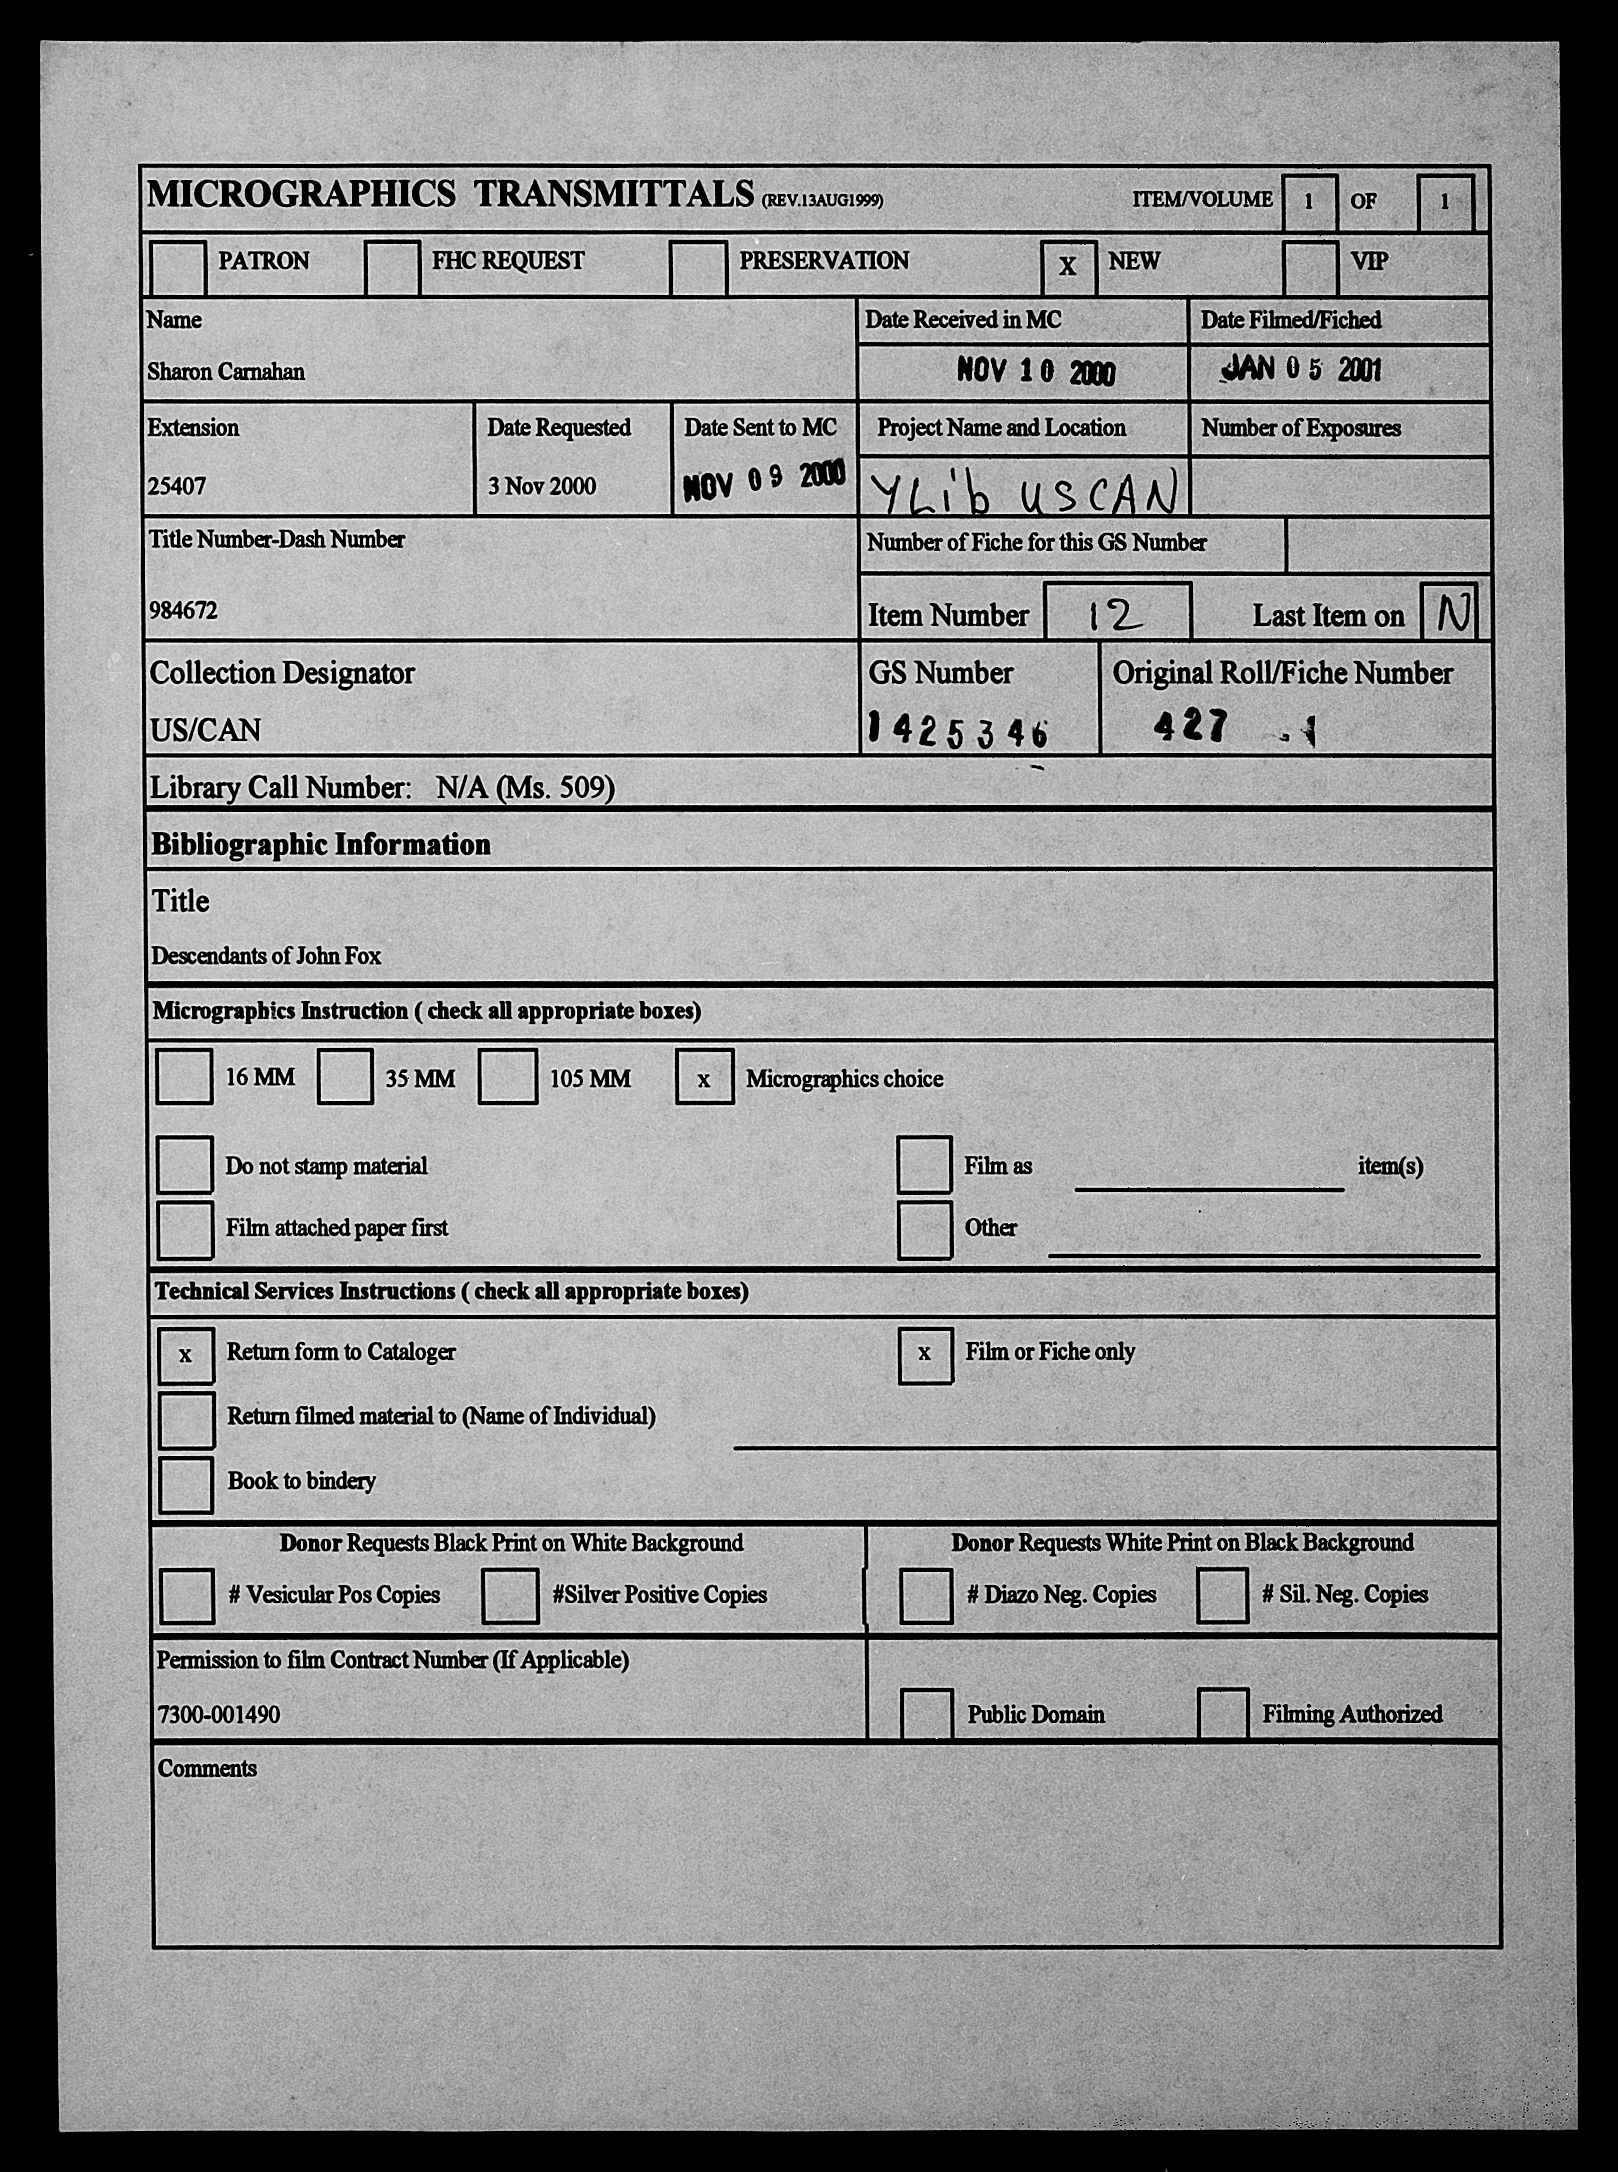 MICROGRAPHICS TRANSMITTALS (REV.13AUG1999) ITEM/VOLUME 1 OF 1
PATRON FHC REQUEST PRESERVATION X NEW VIP
Name Date Received in MC Date Filmed/Fiched
Sharon Carnahan NOV 10 2000 JAN 05 2001
Extension Date Requested Date Sent to MC Project Name and Location Number of Exposures
25407 3 Nov 2000 NOV 09 2000 YLib USCAN
Title Number-Dash Number Number of Fiche for this GS Number
984672 Item Number 12 Last Item on N
Collection Designator GS Number Original Roll/Fiche Number
US/CAN 1425346 427 .1
Library Call Number: N/A (Ms. 509)
Bibliographic Information
Title
Descendants of John Fox
Micrographics Instruction ( check all appropriate boxes)
16 MM 35 MM 105 MM x Micrographics choice
Do not stamp material Film as item(s)
Film attached paper first Other
Technical Services Instructions ( check all appropriate boxes)
x Return form to Cataloger x Film or Fiche only
Return filmed material to (Name of Individual)
Book to bindery
Donor Requests Black Print on White Background Donor Requests White Print on Black Background
# Vesicular Pos Copies #Silver Positive Copies # Diazo Neg. Copies # Sil. Neg. Copies
Permission to film Contract Number (If Applicable)
7300-001490 Public Domain Filming Authorized
Comments